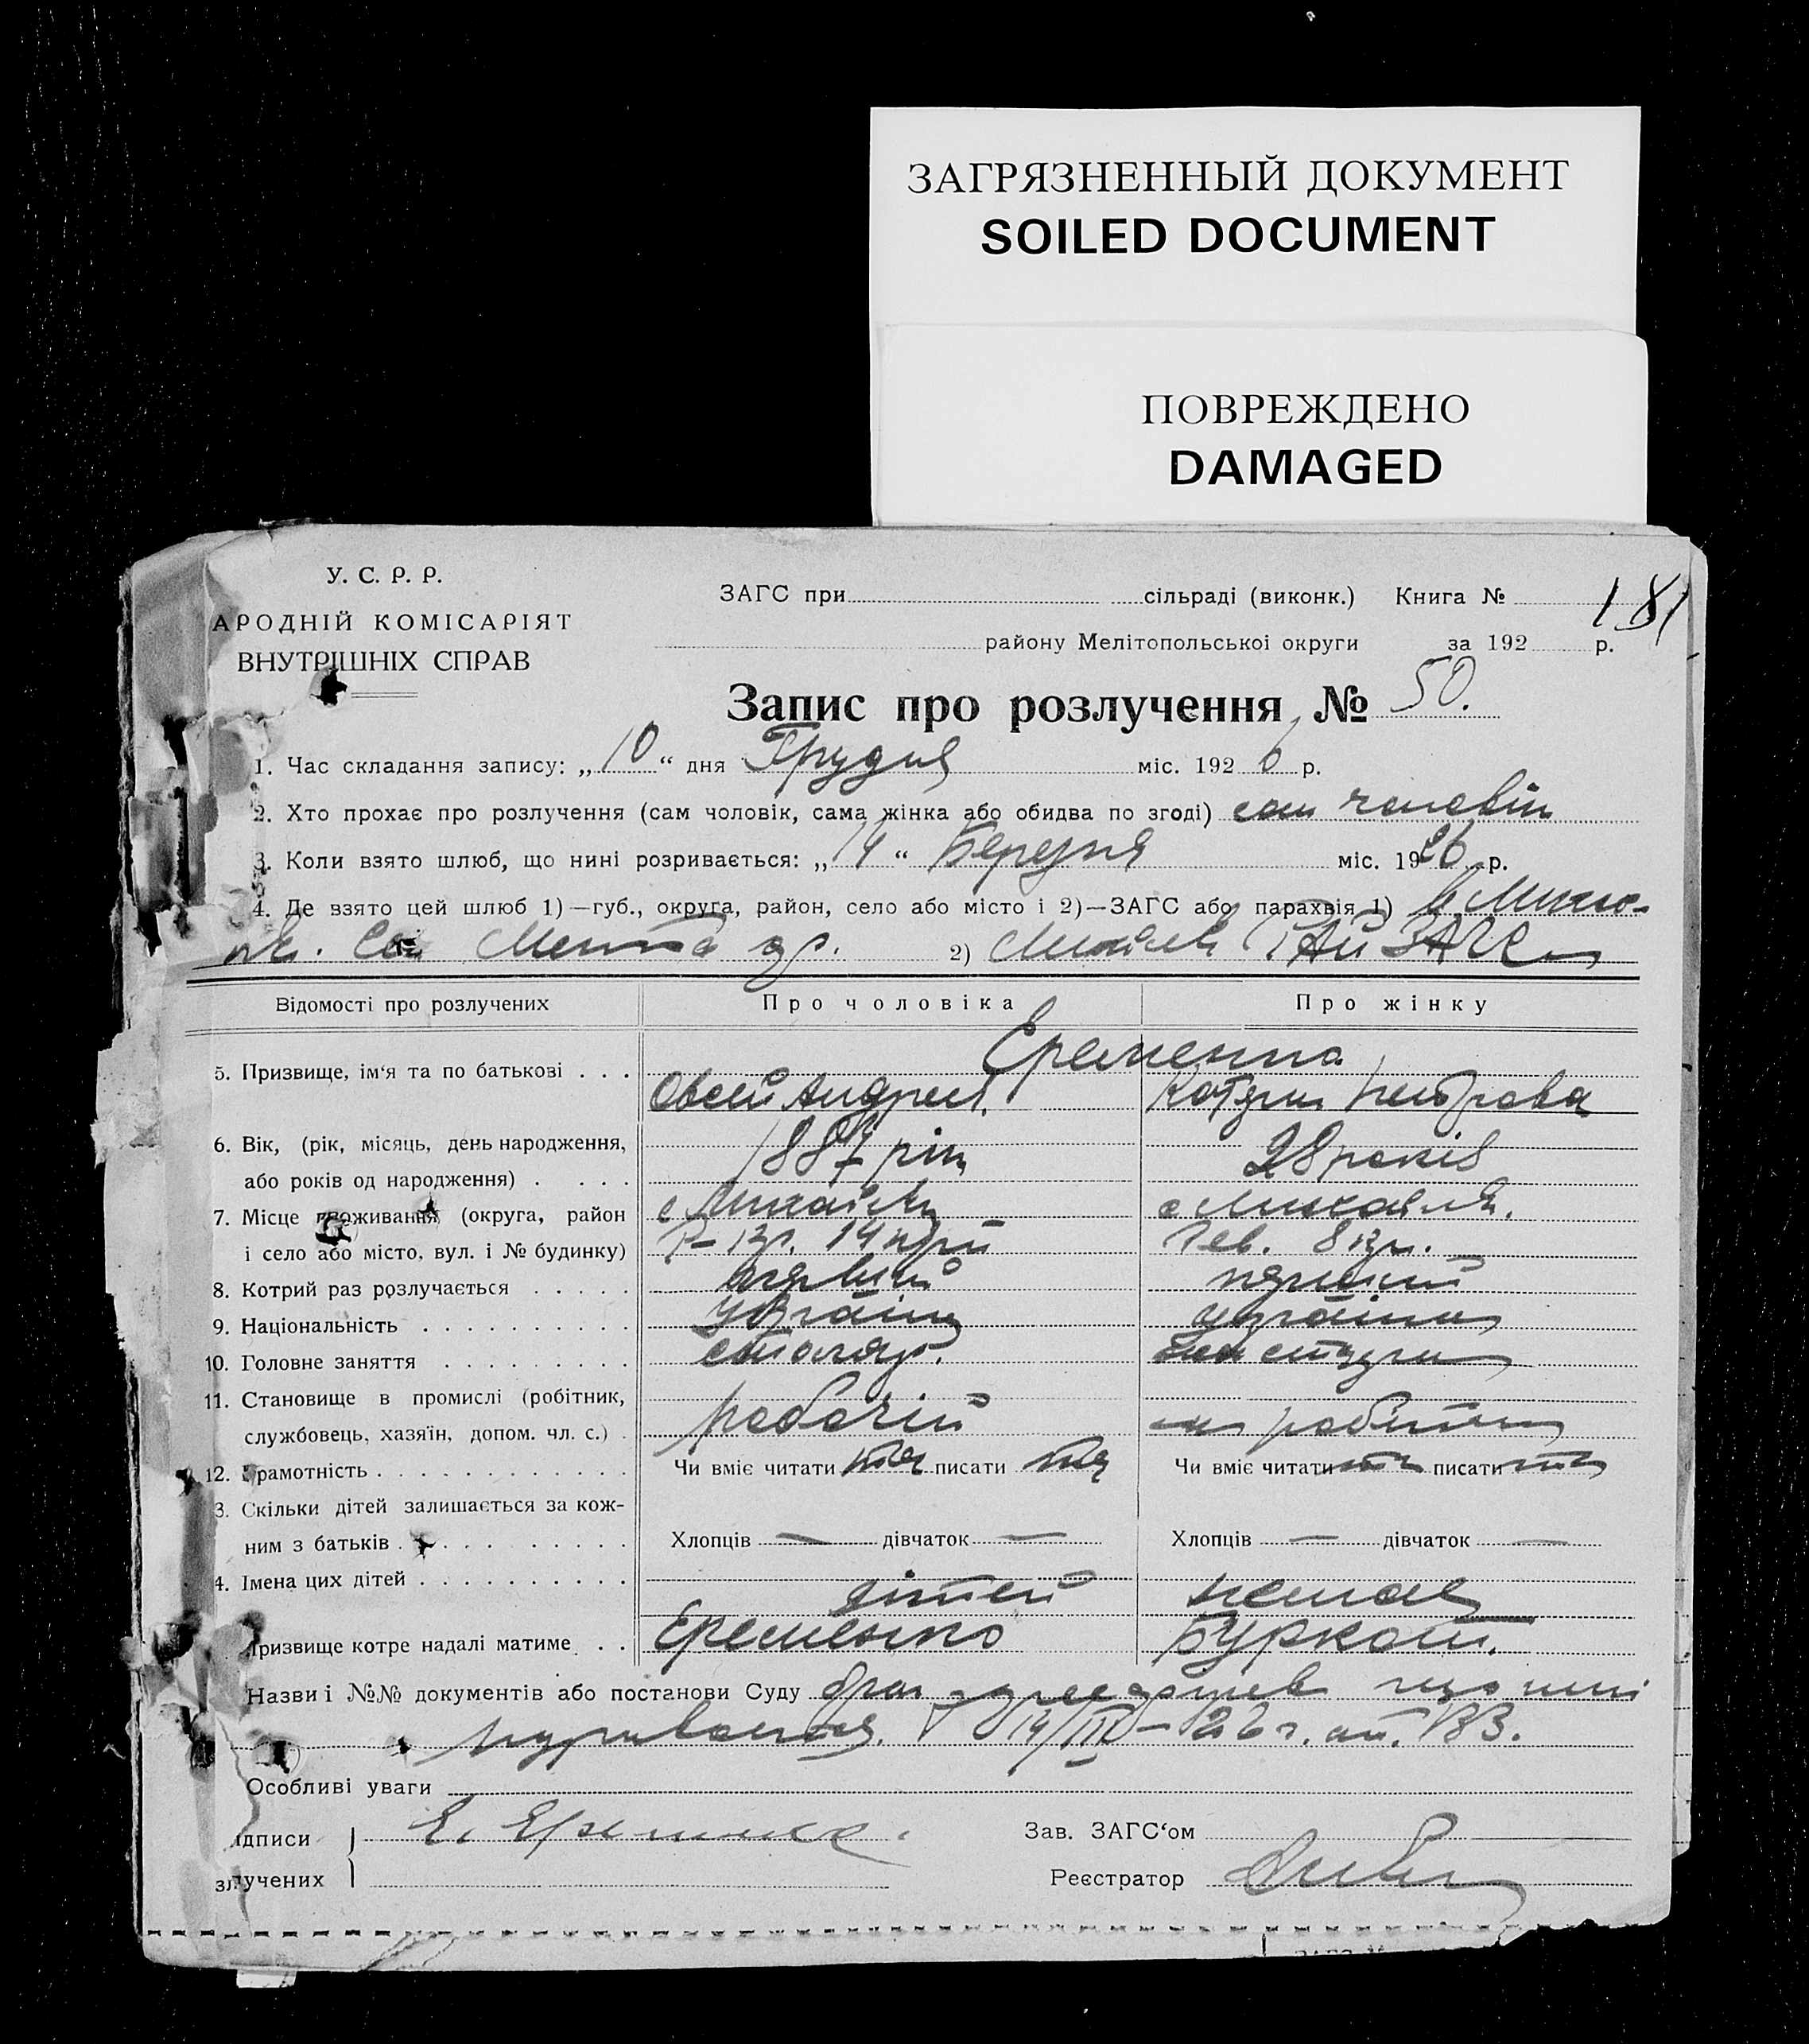 ЗАГРЯЗНЕННЫЙ ДОКУМЕНТ
SOILED DOCUMENT
ПОВРЕЖДЕНО
DAMAGED
У. С. Р. Р.
АРОДНІЙ КОМІСАРІЯТ
ВНУТРІШНІХ СПРАВ
ЗАГС при сільраді (виконк.) Книга №
181
району Мелітопольської округи за 192 р.
Запис про розлучення № 50.
1. Час складання запису: „10“ дня Грудня міс. 1926 р.
2. Хто прохає про розлучення (сам чоловік, сама жінка або обидва по згоді) сам чоловік
3. Коли взято шлюб, що нині розривається: „14“ Березня міс. 1926 р.
4. Де взято цей шлюб 1)—губ., округа, район, село або місто і 2)—ЗАГС або парахвія 1)
2) РАЙ ЗАГС
Відомості про розлучених Про чоловіка Про жінку
Еременко
5. Призвище, ім‘я та по батькові . . . Овсей Андреев. Петрова
6. Вік, (рік, місяць, день народження, або років од народження) . . . . 1887 рік 28 років
7. Місце проживання (округа, район
і село або місто, вул. і № будинку)
8. Котрий раз розлучається . . . . . первий перший
9. Національність . . . . . . . . . . україн україн
10. Головне заняття . . . . . . . . . столяр.
11. Становище в промислі (робітник,
службовець, хазяїн, допом. чл. с.) . рабочій
12. Грамотність . . . . . . . . . . . . Чи вміє читати так писати так Чи вміє читати писати
3. Скільки дітей залишається за кож-
ним з батьків . . . . . . . . . . Хлопців — дівчаток — Хлопців — дівчаток —
4. Імена цих дітей . . . . . . . . . . дітей немає
Призвище котре надалі матиме . . Еременко Буркот.
Назви і №№ документів або постанови Суду що нині
14/III—26 г. 183.
Особливі уваги
ідписи
злучених
Е.
Зав. ЗАГС‘ом
Реєстратор